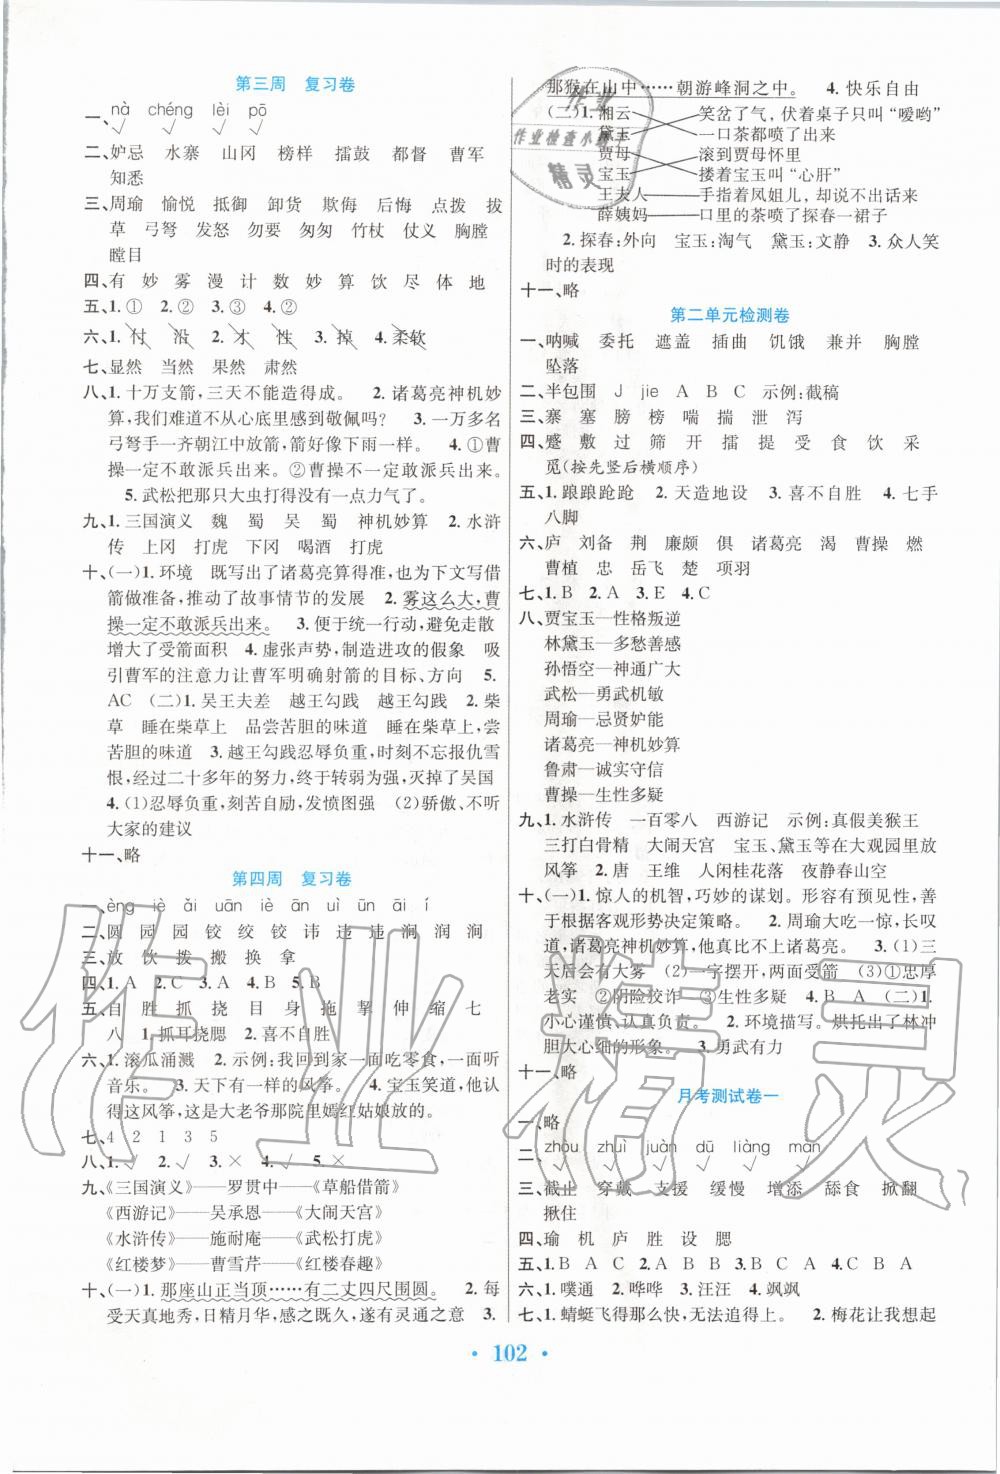 第三周 复习卷
一、nà chéng lèi pō
√ √ √ √
二、妒忌 水寨 山冈 榜样 擂鼓 都督 曹军
知悉
三、周瑜 愉悦 抵御 卸货 欺侮 后悔 点拨 拔
草 弓弩 发怒 勿要 匆匆 竹杖 仗义 胸膛
瞠目
四、有 妙 雾 漫 计 数 妙 算 饮 尽 体 地
五、1.① 2.② 3.③ 4.②
六、1.忖 沿 2.才 性 3.掉 4.柔软
七、显然 当然 果然 肃然
八、1.十万支箭,三天不能造得成。 2.诸葛亮神机妙
算,我们难道不从心底里感到敬佩吗? 3.一万多名
弓弩手一齐朝江中放箭,箭好像下雨一样。 4.①曹
操一定不敢派兵出来。②曹操一定不敢派兵出来。
5.武松把那只大虫打得没有一点力气了。
九、1.三国演义 魏 蜀 吴 蜀 神机妙算 2.水浒
传 上冈 打虎 下冈 喝酒 打虎
十、(一)1.环境 既写出了诸葛亮算得准,也为下文写借
箭做准备,推动了故事情节的发展 2.雾这么大,曹
操一定不敢派兵出来。 3.便于统一行动,避免走散
增大了受箭面积 4.虚张声势,制造进攻的假象 吸
引曹军的注意力让曹军明确射箭的目标、方向 5.
AC (二)1.吴王夫差 越王勾践 越王勾践 2.柴
草 睡在柴草上 品尝苦胆的味道 睡在柴草上,尝
苦胆的味道 3.越王勾践忍辱负重,时刻不忘报仇雪
恨,经过二十多年的努力,终于转弱为强,灭掉了吴国
4.(1)忍辱负重,刻苦自励,发愤图强 (2)骄傲、不听
大家的建议
十一、略
第四周 复习卷
一、èng jè ǎi uān iè ān uì ūn āi í
二、圆 园 园 铰 绞 铰 讳 违 违 涧 润 涧
三、放 饮 拨 搬 换 拿
四、1.A 2.C 3.A 4.B 5.B
五、自 胜 抓 挠 目 身 拖 挚 伸 缩 七
八 1.抓耳挠腮 2.喜不自胜
六、1.滚瓜涌溅 2.示例:我回到家一面吃零食,一面听
音乐。 3.天下有一样的风筝。 4.宝玉笑道,他认
得这风筝,这是大老爷那院里嫣红姑娘放的。
七、4 2 1 3 5
八、1.√ 2.√ 3.× 4.√ 5.×
九、《三国演义》——罗贯中——《草船借箭》
《西游记》——吴承恩——《大闹天宫》
《水浒传》——施耐庵——《武松打虎》
《红楼梦》——曹雪芹——《红楼春趣》
十、(一)1.那座山正当顶……有二丈四尺围圆。 2.每
受天真地秀,日精月华,感之既久,遂有灵通之意 3.
那猴在山中……朝游峰洞之中。 4.快乐自由
(二)1.湘云 笑岔了气,伏着桌子只叫“嗳哟”
黛玉 一口茶都喷了出来
贾母 滚到贾母怀里
宝玉 搂着宝玉叫“心肝”
王夫人 手指着凤姐儿,却说不出话来
薛姨妈 口里的茶喷了探春一裙子
2.探春:外向 宝玉:淘气 黛玉:文静 3.众人笑
时的表现
十一、略
第二单元检测卷
一、呐喊 委托 遮盖 插曲 饥饿 兼并 胸膛
坠落
二、半包围 J jie A B C 示例:截稿
三、寨 塞 膀 榜 喘 揣 泄 泻
四、蹙 敷 过 筛 开 擂 提 受 食 饮 采
觅(按先竖后横顺序)
五、1.踉踉跄跄 2.天造地设 3.喜不自胜 4.七手
八脚
六、庐 刘备 荆 廉颇 俱 诸葛亮 渴 曹操 燃
曹植 忠 岳飞 楚 项羽
七、1.B 2.A 3.E 4.C
八、贾宝玉—性格叛逆
林黛玉—多愁善感
孙悟空—神通广大
武松—勇武机敏
周瑜—忌贤妒能
诸葛亮—神机妙算
鲁肃—诚实守信
曹操—生性多疑
九、1.水浒传 一百零八 西游记 示例:真假美猴王
三打白骨精 大闹天宫 宝玉、黛玉等在大观园里放
风筝 2.唐 王维 人闲桂花落 夜静春山空
十、(一)1.惊人的机智,巧妙的谋划。形容有预见性,善
于根据客观形势决定策略。 2.周瑜大吃一惊,长叹
道,诸葛亮神机妙算,他真比不上诸葛亮。 3.(1)三
天后会有大雾 (2)一字摆开,两面受箭 (3)①忠厚
老实 ②阴险狡诈 ③生性多疑 (二)1.
小心谨慎,认真负责。 2.环境描写。烘托出了林冲
胆大心细的形象。 3.勇武有力
十一、略
月考测试卷一
一、略
二、zhòu zhuì juàn dū liàng mán
√ √ √ √ √ √
三、截止 穿戴 支援 缓慢 增添 舔食 掀翻
揪住
四、瑜 机 庐 胜 设 腮
五、1.B A C 2.A B A 3.C B A
六、1.噗通 2.哗哗 3.汪汪 4.飒飒
七、1.蜻蜓飞得那么快,无法追得上。 2.梅花让我想起
· 102 ·
作业
作业检查小精灵
精灵
作业精灵